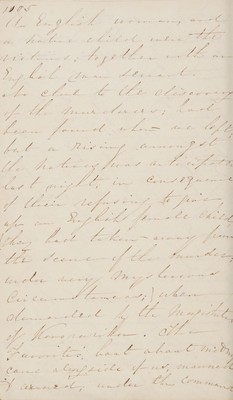 1105
An English woman, and
a native child were the
victims, together with an
English man servant.
No clue to the discovery
of the murderers; had
been found when we left,
but a rising amongst
the Natives was anticipated
last night, in consequence
of their refusing to give
up an English female child
they had taken away from
the scene of the murder,
under very mysterious
circumstances, when
demanded by the Magistrate
of Kororarika. The
Favorite's boat about mid
came alongside of us, manned
& armed, under the command